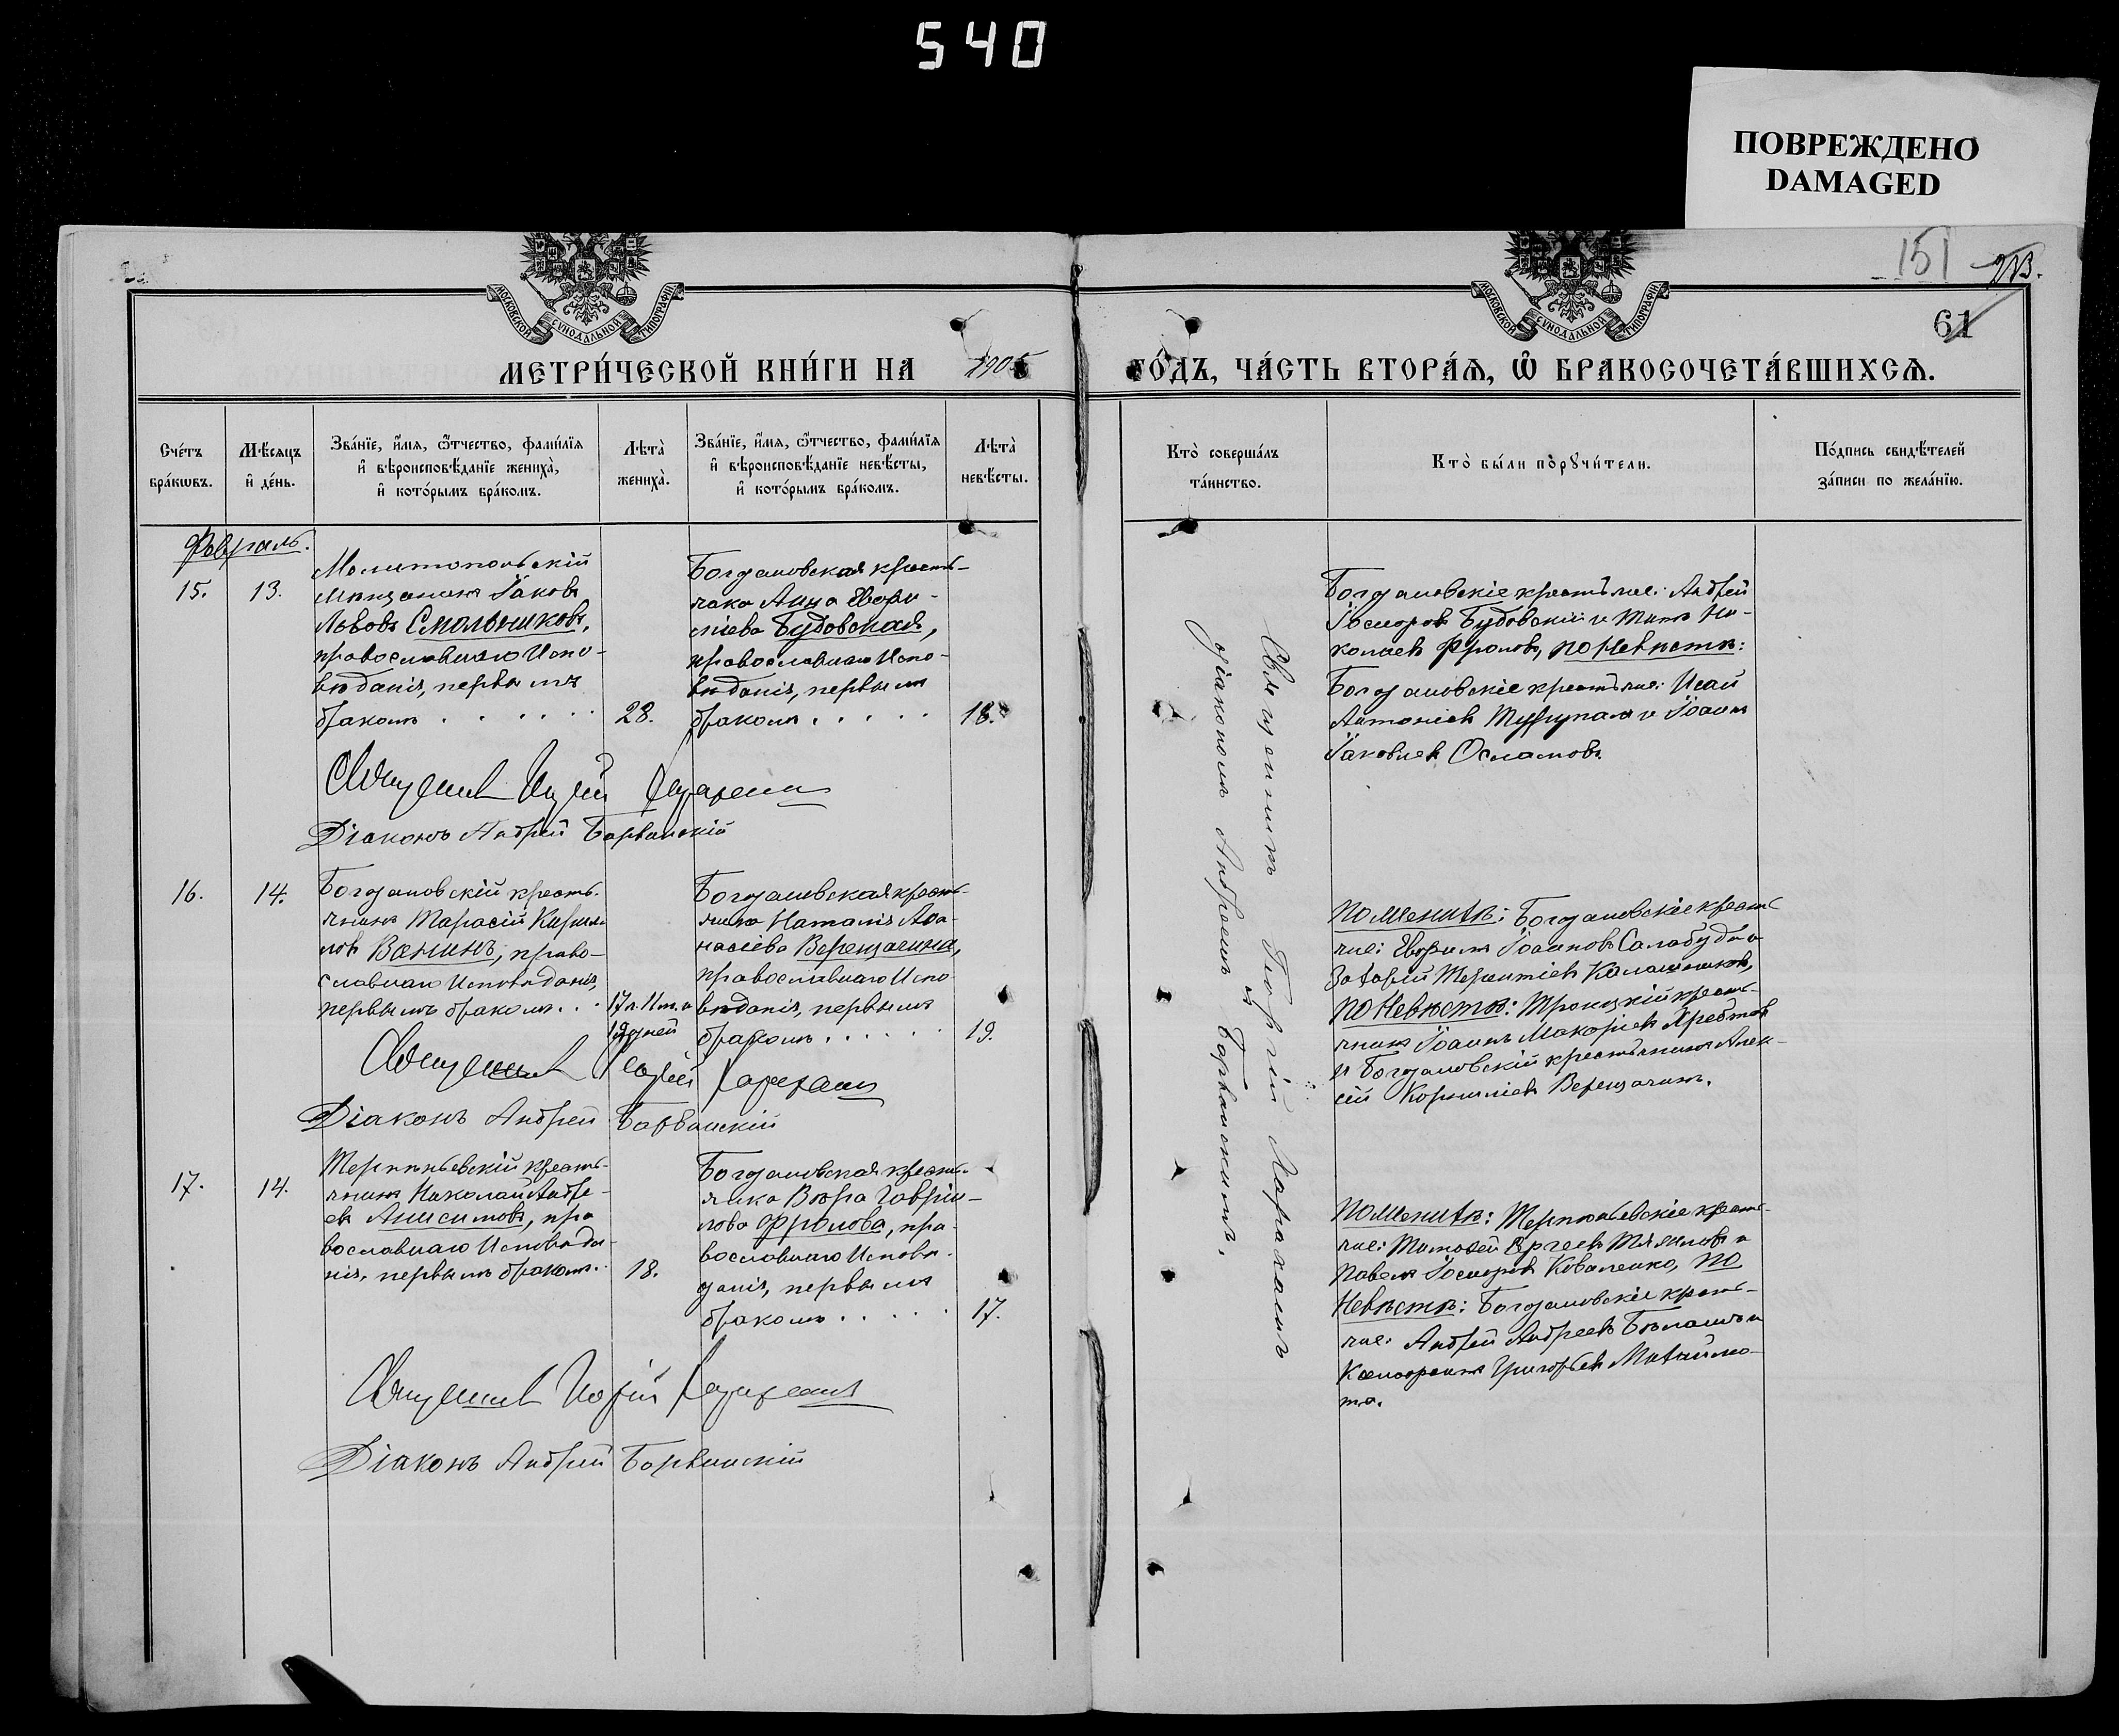 540
ПОВРЕЖДЕНО
DAMAGED
151
61
МОСКОВСКОЙ СУНОДАЛЬНОЙ ТИПОГРАФІИ
МОСКОВСКОЙ СУНОДАЛЬНОЙ ТИПОГРАФІИ
МЕТРИ́ЧЕСКОЙ КНИ́ГИ НА 1905 ГО́ДЪ, ЧА́СТЬ ВТОРА́Ѧ, Ѽ БРАКОСОЧЕТА́ВШИХСѦ.
Сче́тъ
бра́кѡвъ.
Мѣ́сяцъ
и҆ де́нь.
Зва́нїе, и҆́мя, ѻ҆́тчество, фами́лїя
и҆ вѣроисповѣ́данїе жениха̀,
и҆ кото́рымъ бра́комъ.
Лѣта̀
жениха̀.
Зва́нїе, и҆́мя, ѻ҆́тчество, фами́лїя
и҆ вѣроисповѣ́данїе невѣ́сты,
и҆ кото́рымъ бра́комъ.
Лѣта̀
невѣ́сты.
Кто̀ соверша́лъ
та́инство.
Кто̀ бы́ли порꙋчи́тели.
По́дпись свидѣ́телей
за́писи по жела́нїю.
Февраль.
15.
13.
Мелитопольскій
мѣщанинъ Іаковъ
Львовъ Смольниковъ,
православнаго Испо-
вѣданія, первымъ
бракомъ . . . . . .
28.
Богдановская кресть-
янка Анна
Будовская,
православнаго Испо-
вѣданія, первымъ
бракомъ . . . . .
18.
Богдановскіе крестьяне: Андрей
Будовскій и Титъ Ни-
колаевъ Фроловъ, по Невѣстѣ:
Богдановскіе крестьяне: Исай
Антоніевъ и Іоаннъ
Іаковлевъ Асламовъ.
Священникъ
Діаконъ Андрей Борвинскій
16.
14.
Богдановскій кресть-
янинъ Тарасій Кирил-
овъ Ванинъ, право-
славнаго Исповѣданія,
первымъ бракомъ . .
17 л. 11 м. и
дней
Богдановская кресть-
янка Наталія Аѳа-
насіева Верещагина,
православнаго Испо-
вѣданія, первымъ
бракомъ . . . . .
19.
по Женихѣ: Богдановскіе кресть-
яне: Іоанновъ Салабуда и
Захарій Терентіевъ Калашниковъ,
по Невѣстѣ: Троицкій кресть-
янинъ Іоаннъ Макаріевъ
и Богдановскій крестьянинъ Алек-
сій Корниліевъ Верещагинъ.
Священникъ
Діаконъ Андрей Борвинскій
17.
14.
Терпѣньевскій кресть-
янинъ Николай Андре-
евъ Анисимовъ, пра
вославнаго Исповѣда-
нія, первымъ бракомъ.
18.
Богдановская кресть-
янка Вѣра Гаврии-
лова Фролова, пра-
вославнаго Исповѣ-
данія, первымъ
бракомъ . . . . .
17.
по Женихѣ: Терпѣньевскіе кресть-
яне: Тимоѳей Сергѣевъ и
Павелъ Коваленко, по
Невѣстѣ: Богдановскіе кресть-
яне: Андрей Андреевъ и
Григорьевъ
Священникъ
Діаконъ Андрей Борвинскій
Священникъ Георгій
съ діакономъ Андреемъ Борвинскимъ.